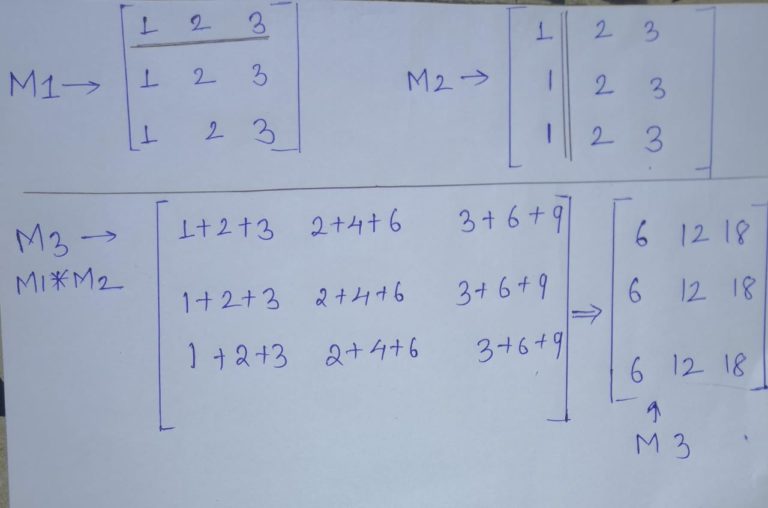 M1→ [1 2 3
1 2 3
1 2 3]
M2→ [1 2 3
1 2 3
1 2 3]
M3→ [1+2+3 2+4+6 3+6+9
M1*M2
1+2+3 2+4+6 3+6+9
1+2+3 2+4+6 3+6+9]
⇒ [6 12 18
6 12 18
6 12 18]
↑
M3